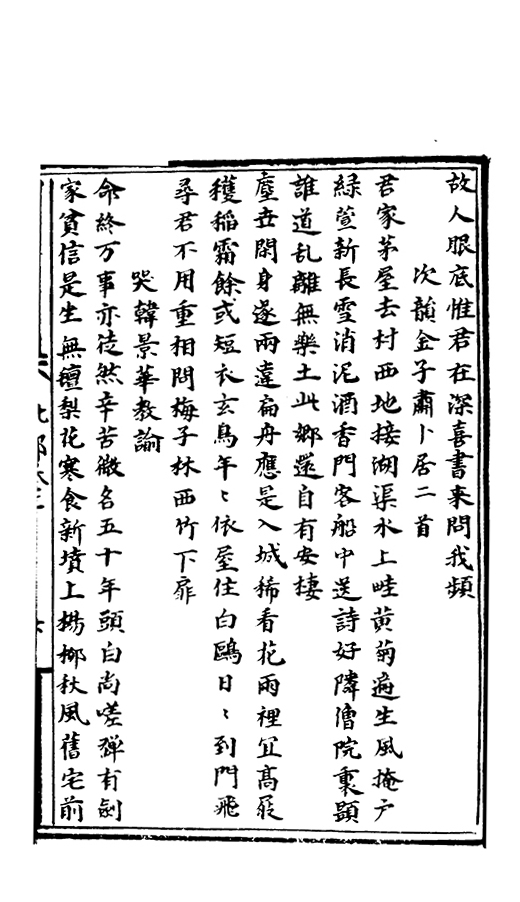 故人眼底惟君在深喜書来問我頻
次韻金子肅卜居二首
君家茅屋去村西地接湖渠水上畦黄菊遍生風掩户
緑萱新長雪消泥酒香門客船中送詩好隣僧院裏題
誰道乱離無樂土此鄉還自有安棲
塵世閑身遂兩違扁舟應是入城稀看花雨裡宜高屐
穫稲霜餘或短衣玄鳥年〻依屋住白鷗日〻到門飛
尋君不用重相問梅子林西竹下扉
哭韓景華教諭
命終万事亦徒然辛苦微名五十年頭白尚嗟殫有劍
家貧信是生無氊梨花寒食新墳上楊柳秋風舊宅前
北郭